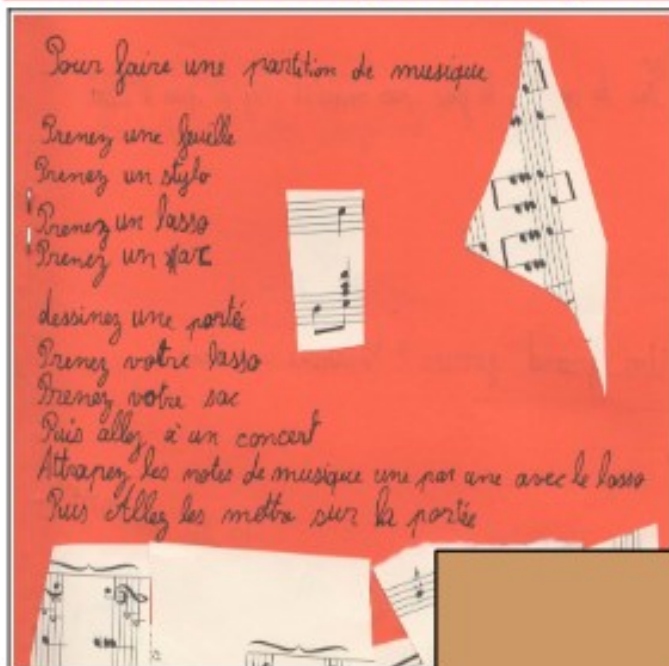 Pour faire une partition de musique
Prenez une feuille
Prenez un stylo
Prenez un lasso
Prenez un sac
dessinez une portée
Prenez votre lasso
Prenez votre sac
Puis allez à un concert
Attrapez les notes de musique une par une avec le lasso
Puis Allez les mettre sur la portée